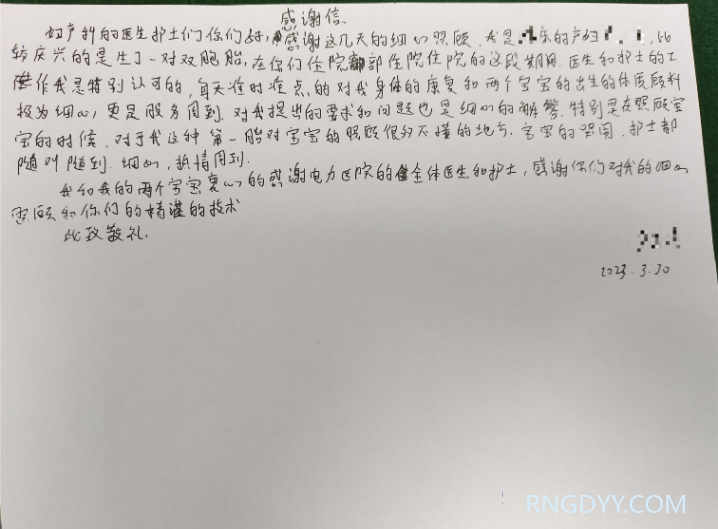 感谢信
妇产科的医生护士们你们好,感谢这几天的细心照顾,我是 床的产妇 ,比
较庆兴的是生了一对双胞胎,在你们住院部住院住院的这段期间,医生和护士的工
作我是特别认可的,每天准时准点的对我身体的康复和两个宝宝的出生的体质顾料
极为细心,更是服务周到,对我提出的要求和问题也是细心的解答,特别是在照顾宝
宝的时候,对于我这种第一胎对宝宝的照顾很多不懂的地方,宝宝的哭闹,护士都
随叫随到,细心,热情周到.
我和我的两个宝宝衷心的感谢电力医院的全体医生和护士,感谢你们对我的细心
照顾和你们的精湛的技术
此致敬礼.
2023.3.30
RNGDYY.COM